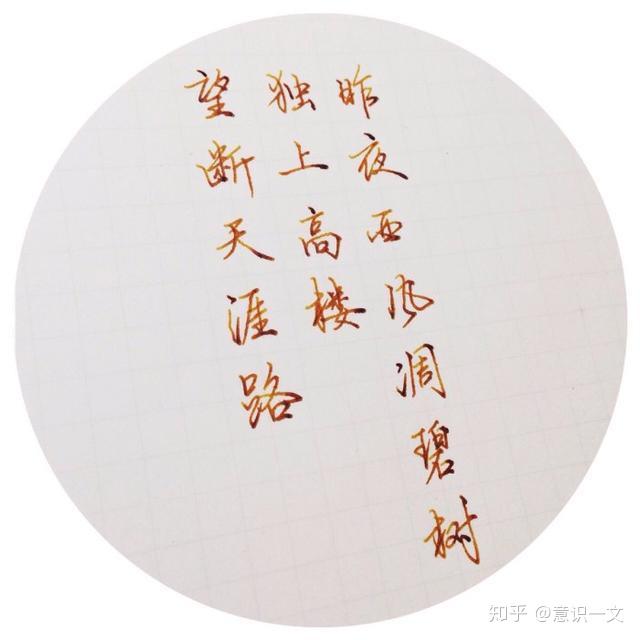 昨夜西风凋碧树
独上高楼
望断天涯路
知乎 @意识一文